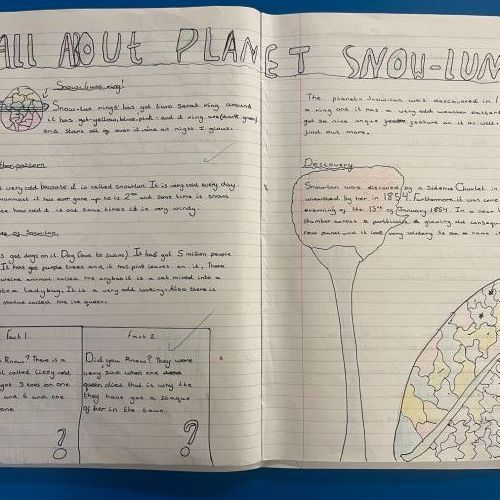 ALL ABOUT PLANET SNOW-LUN
Snow-luns ring!
Snow-lun rings has got two sarat ring around
it has got yellow, blue, pink and it ring are (dark gray)
and stars all over it and at night I glows.
ther pattern
very odd because it is called snowlun. It is very cold every day
warmest it has ever gone up to is 2 and some time is snows
how cold it is and some times it is very windy.
of Snowlun
s got dogs on it Dog (love to swim). It has got 5 million people
It has got purple trees and it has pint leaves on it, There
animal called the is a cat mixed into a
Ladybug. It is a very odd looking. Also there is
statue called the ice queen.
fact 1
Know? There is a
called Lizzy and
got 3 toes on one
and 6 and one
one
?
Fact 2
Did you Know? They were
very sad when one
queen died that is why the
they have got a
of her in the town.
?
The planet Snowlun was discovered in 1
a ring and it has a very odd weather patter
got so nice unque feature on it as well
find out more.
Descovery
Snowlun was discoverd by a Sidence Charlet in
unearthed by her in 1854. Furthermore it was come
evening of the 15th of January 1854. In a
stumber across a particular glowing
new planet and it look very solitary. So she a name it